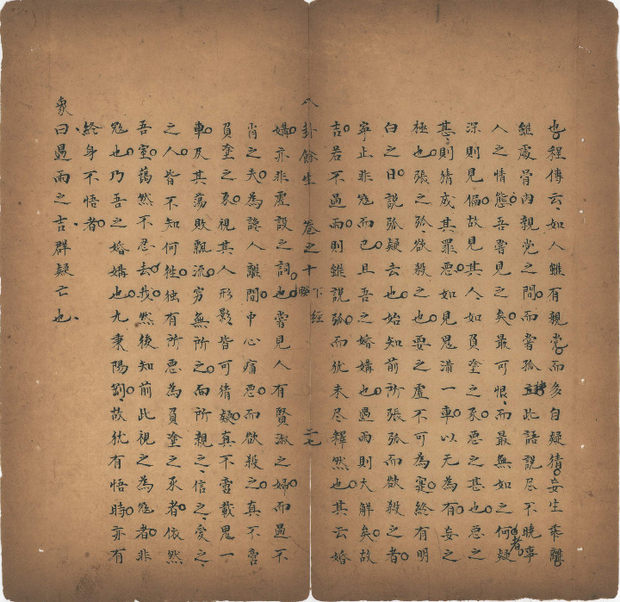 也程傳云如人雖有親黨而多自疑猜妄生乖離
雖處骨肉親黨之間而嘗孤獨此語說尽不曉事
人之情態吾嘗見之矣最可恨而最無如之何者疑
深則見偏故見其人如負塗之豕惡之甚也惡之
甚則猜成其罪惡如見鬼滿一車以无為有妄之
極也張之弧欲殺之也要之虛不可為寔終有明
白之日說弧疑去也始知前所張弧而欲殺之者
寧止非寇而已且吾之婚媾也遇雨則大解矣故
吉若不遇雨則雖說弧而犹未尽釋然也其云婚
八卦餘生 卷之十 下經 睽 二七
媾亦非虛設之詞也嘗見人有賢淑之婦而遇不
肖之夫為讒人離間中心疾惡而欲殺之真不啻
負塗之豕視其人形影皆可猜疑真不啻載鬼一
車及其蕩敗飄流穷無所之而所親之信之愛之
之人皆不知何徃独有所惡為負塗之豕者依然
吾室藹然不忍去我然後知前此視之為寇者非
寇也乃吾之婚媾也九秉陽剛故犹有悟時亦有
終身不悟者
象曰遇雨之吉群疑亡也